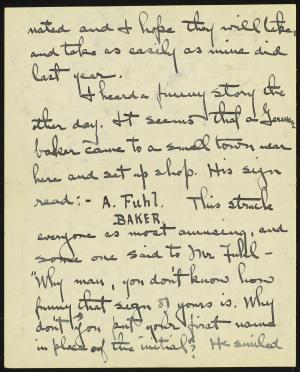 nated and I hope they will take,
and take as easily as mine did
last year.
I heard a funny story the
other day. It seems that a German
baker came to a small town near
here and set up shop. His sign
read:- A. Fuhl. This struck
BAKER
everyone as most amusing, and
some one said to Mr Fuhl -
"Why man, you don't know how
funny that sign of yours is. Why
don't you put your first name
in place of the initial? He smiled